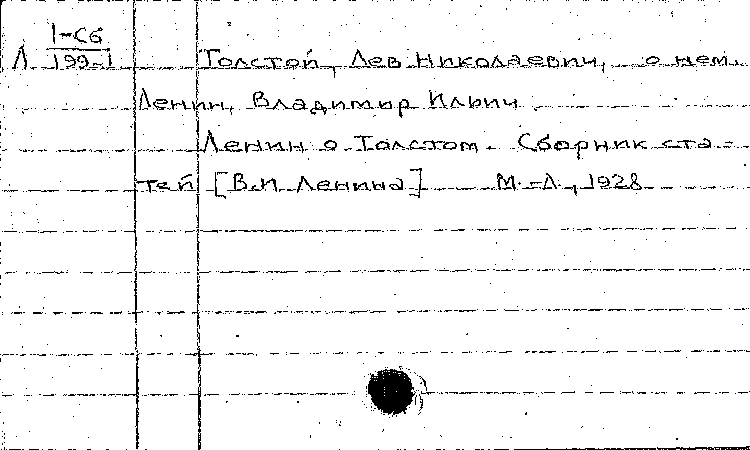 1-C6
Л 199-1 Толстой, Лев Николаевич, о нем.
Ленин, Владимир Ильич
Ленин о Толстом. Сборник ста-
тей [В.И. Ленина] М.-Л., 1928